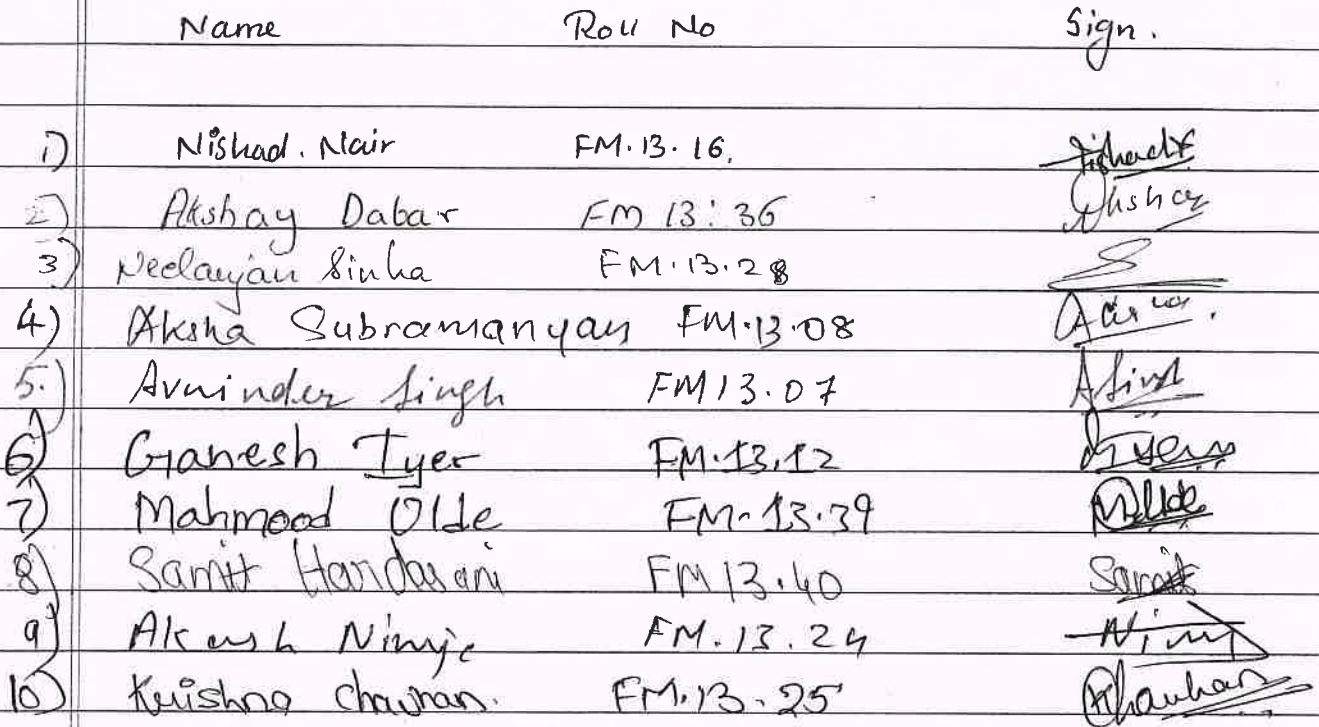 Name Roll No Sign.
1) Nishad. Nair FM.13.16.
2) Akshay Dabar FM 13:36 Akshay
3) Neelanjan Sinha FM.13.28
4) Aksha Subramanyan FM.13.08
5.) Avninder Singh FM13.07 ASingh
6) Ganesh Iyer FM.13.12 Iyer
7) Mahmood Olde FM-13.39
8) Samit Handasani FM13.40 Samit
9) Akash Nimje FM.13.24
10) Krishna Chauhan. FM.13.25 Chauhan